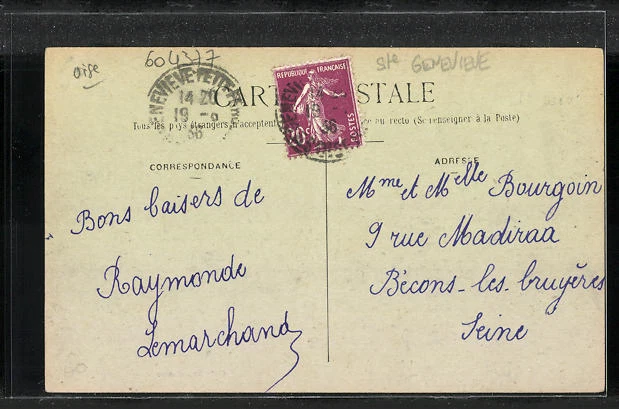 Oise
604377
Ste GENEVIEVE
14 20
19 -6
36
REPUBLIQUE FRANÇAISE
20c
POSTES
CARTE POSTALE
Tous les pays étrangers n'acceptent au recto (Se renseigner à la Poste)
CORRESPONDANCE
Bons baisers de
Raymonde
Lemarchand
ADRESSE
Mme et Melle Bourgoin
9 rue Madiraa
Bécons-les-bruyères
Seine